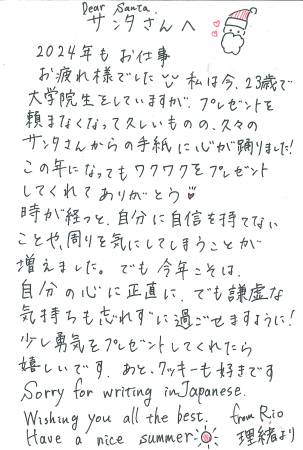 Dear Santa.
サンタさんへ
2024年もお仕事
お疲れ様でした 私は今、23歳で
大学院生をしていますが、プレゼントを
頼まなくなって久しいものの、久々の
サンタさんからの手紙に心が踊りました!
この年になってもワクワクをプレゼント
してくれてありがとう
時が経つと、自分に自信を持てない
ことや、周りを気にしてしまうことが
増えました。でも今年こそは、
自分の心に正直に、でも謙虚な
気持ちも忘れずに過ごせますように!
少し勇気をプレゼントしてくれたら
嬉しいです。あと、クッキーも好きです
Sorry for writing in Japanese.
Wishing you all the best. from Rio
Have a nice summer 理緒より